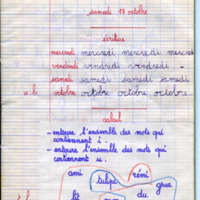 samedi 17 octobre
écriture
mercredi mercredi mercredi mercre
vendredi vendredi vendredi -
samedi samedi samedi samedi
a.b. octobre octobre octobre octobre
calcul
- entoure l'ensemble des mots qui
contiennent i.
- entoure l'ensemble des mots qui
contiennent u.
ami rémi
tulipe gros
du